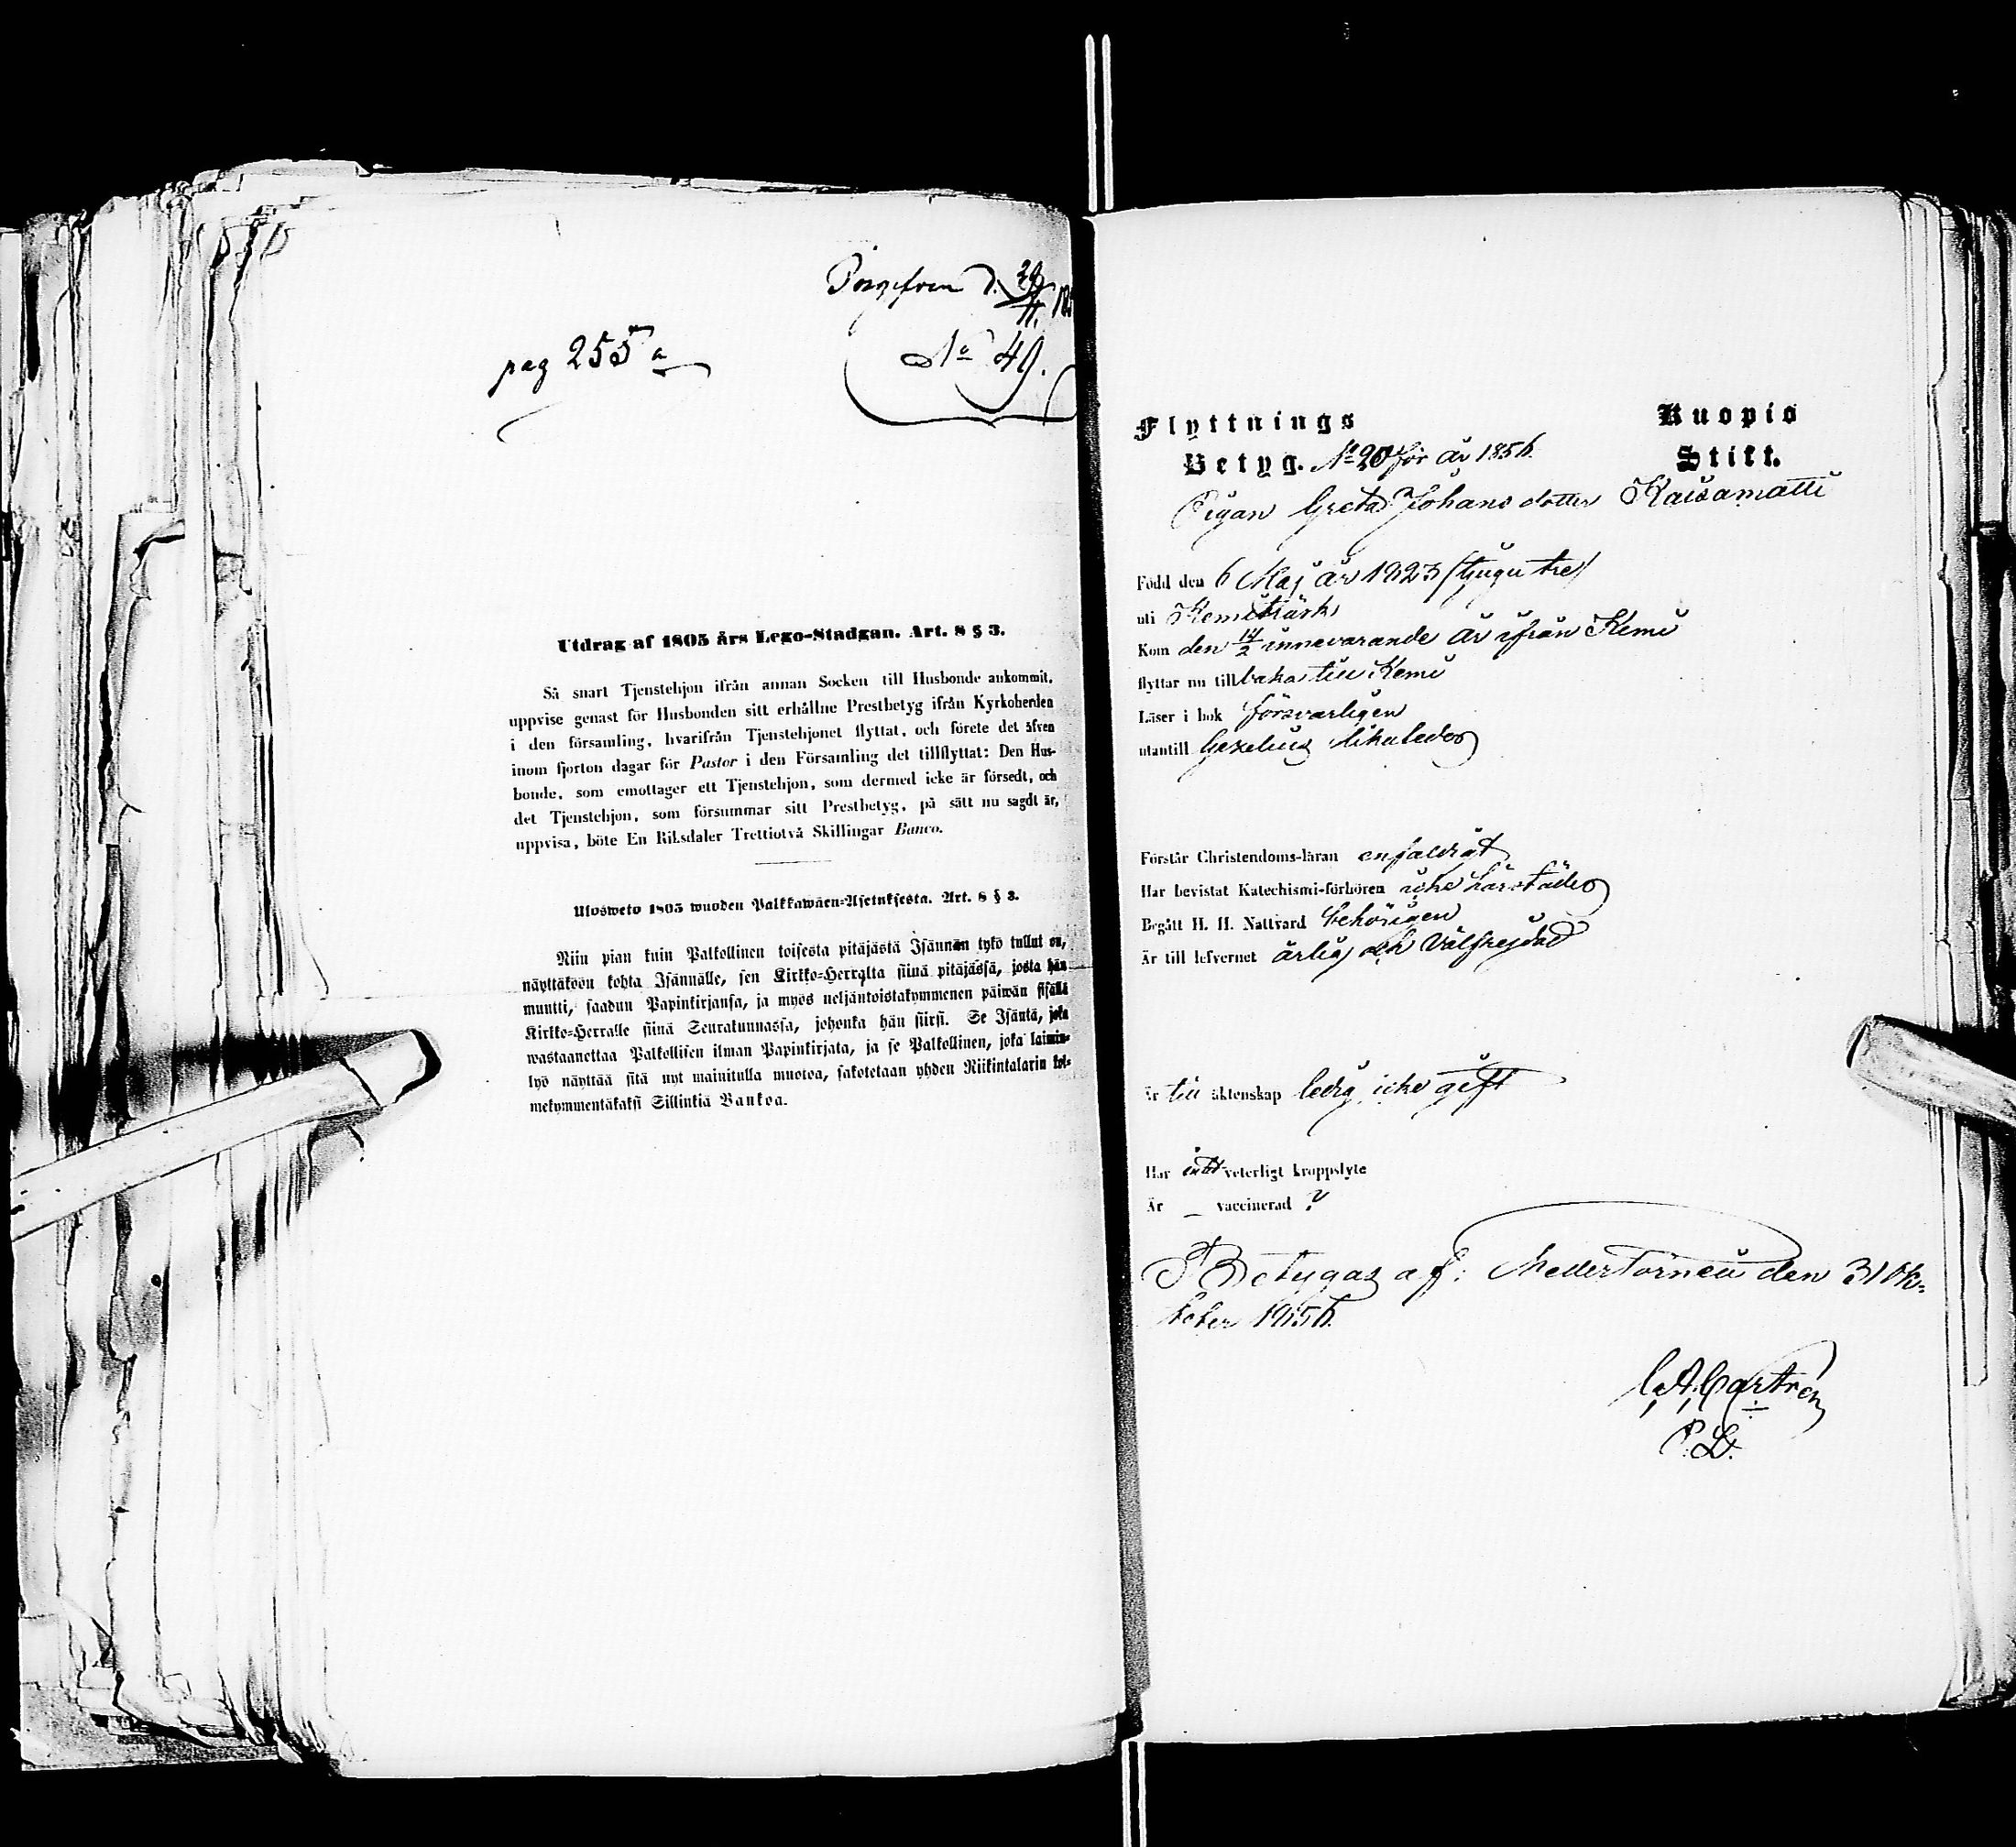 d. 29/11 18
No 49.
pag 255 a
Utdrag af 1805 års Lego-Stadgan. Art. 8 § 3.
Så snart Tjenstehjon ifrån annan Socken till Husbonde ankommit,
uppvise genast för Husbonden sitt erhållne Prestbetyg ifrån Kyrkoherden
i den församling, hvarifrån Tjenstehjonet flyttat, och förete det äfven
inom fjorton dagar för Pastor i den Församling det tillflyttat: Den Hus-
bonde, som emottager ett Tjenstehjon, som dermed icke är försedt, och
det Tjenstehjon, som försummar sitt Prestbetyg, på sätt nu sagdt är,
uppvisa, böte En Riksdaler Trettiotvå Skillingar Banco.
Ulosweto 1805 wuoden Palkkawäen-Asetuksesta. Art. 8 § 3.
Niin pian kuin Palkollinen toisesta pitäjästä Isännän tykö tullut on,
näyttäköön kohta Isännälle, sen Kirkko-Herralta siinä pitäjässä, josta hän
muutti, saadun Papinkirjansa, ja myös neljäntoistakymmenen päiwän sisällä
Kirkko-Herralle siinä Seurakunnassa, johonka hän siirsi. Se Isäntä, joka
wastaanottaa Palkollisen ilman Papinkirjata, ja se Palkollinen, joka laimin-
lyö näyttää sitä nyt mainitulla muotoa, sakotetaan yhden Riikintalarin kol-
mekymmentäkaksi Sillinkiä Bankoa.
Flyttnings Kuopio
Betyg. No 20 för år 1856. Stift.
Pigan Greta Johans dotter Kaisamatti
Född den 6 Maj år 1823 (tjugu tre)
uti Kemiträsk
Kom den 14/2 innevarande år ifrån Kemi
flyttar nu till baka till Kemi
Läser i bok försvarligen
utantill Gezelius likaledes
Förstår Christendoms-läran enfaldigt
Har bevistat Katechismi-förhören icke härstädes
Begått H. H. Nattvard behörigen
Är till lefvernet ärlig och välfrejdad
Är till äktenskap ledig, icke gift
Har intet veterligt kroppslyte
Är _ vaccinerad ?
Betygas af: Nedertorneå den 31 Ok-
tober 1856.
C. A. Castrén
P. L.